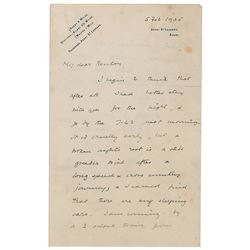 5 Feb 1905
My dear Newton
I begin to think that
after all I had better stay
with you for the night, &
go by the 7.43 next morning.
It is cruelly early, but a
broken night's rest is a still
greater trial after a
long speech & cross country
journey; & I cannot find
that there are any sleeping
cars. I am coming by
a 3 o'clock train from